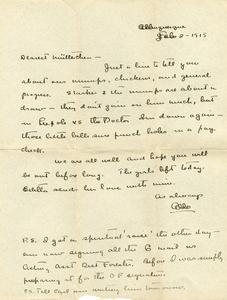 Albuquerque
Feb 2 - 1915
Dearest Mütterchen -
Just a line to tell you
about our mumps, chickens, and general
progress. & the mumps are about a
draw - they don't gain on him much, but
in Peoples vs the Doctor I'm down again -
those little bills sure punch holes in a pay
check.
We are all well and hope you will
be out before long. The girls left today.
Estella sends her love with mine.
As always
P.S. I got a spiritual 'raise' the other day -
am now signing all the mail as
Acting Asst Dist Forester. Before I was simply
preparing it for the signature.
P.S. Tell Carl am writing him tomorrow.